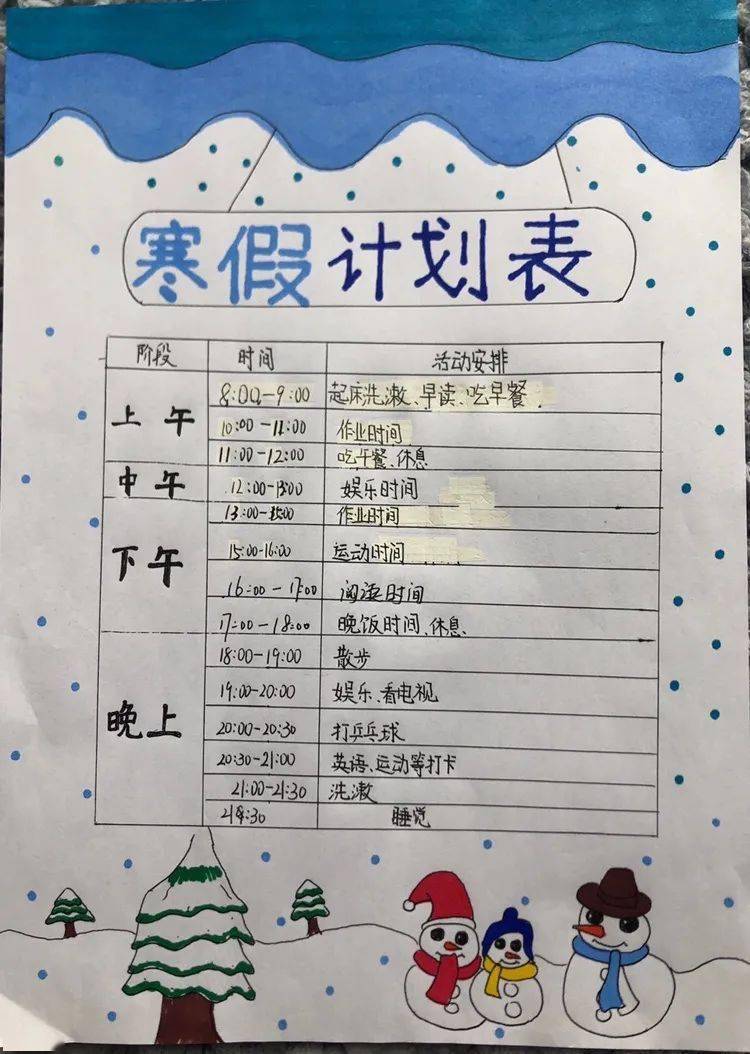 寒假计划表
阶段 时间 活动安排
上午 8:00-9:00 起床洗漱、早读、吃早餐.
10:00-11:00 作业时间
11:00-12:00 吃午餐、休息
中午 12:00-13:00 娱乐时间
下午 13:00-15:00 作业时间
15:00-16:00 运动时间
16:00-17:00 阅读时间
17:00-18:00 晚饭时间、休息
晚上 18:00-19:00 散步
19:00-20:00 娱乐、看电视
20:00-20:30 打乒乓球
20:30-21:00 英语、运动等打卡
21:00-21:30 洗漱
睡觉